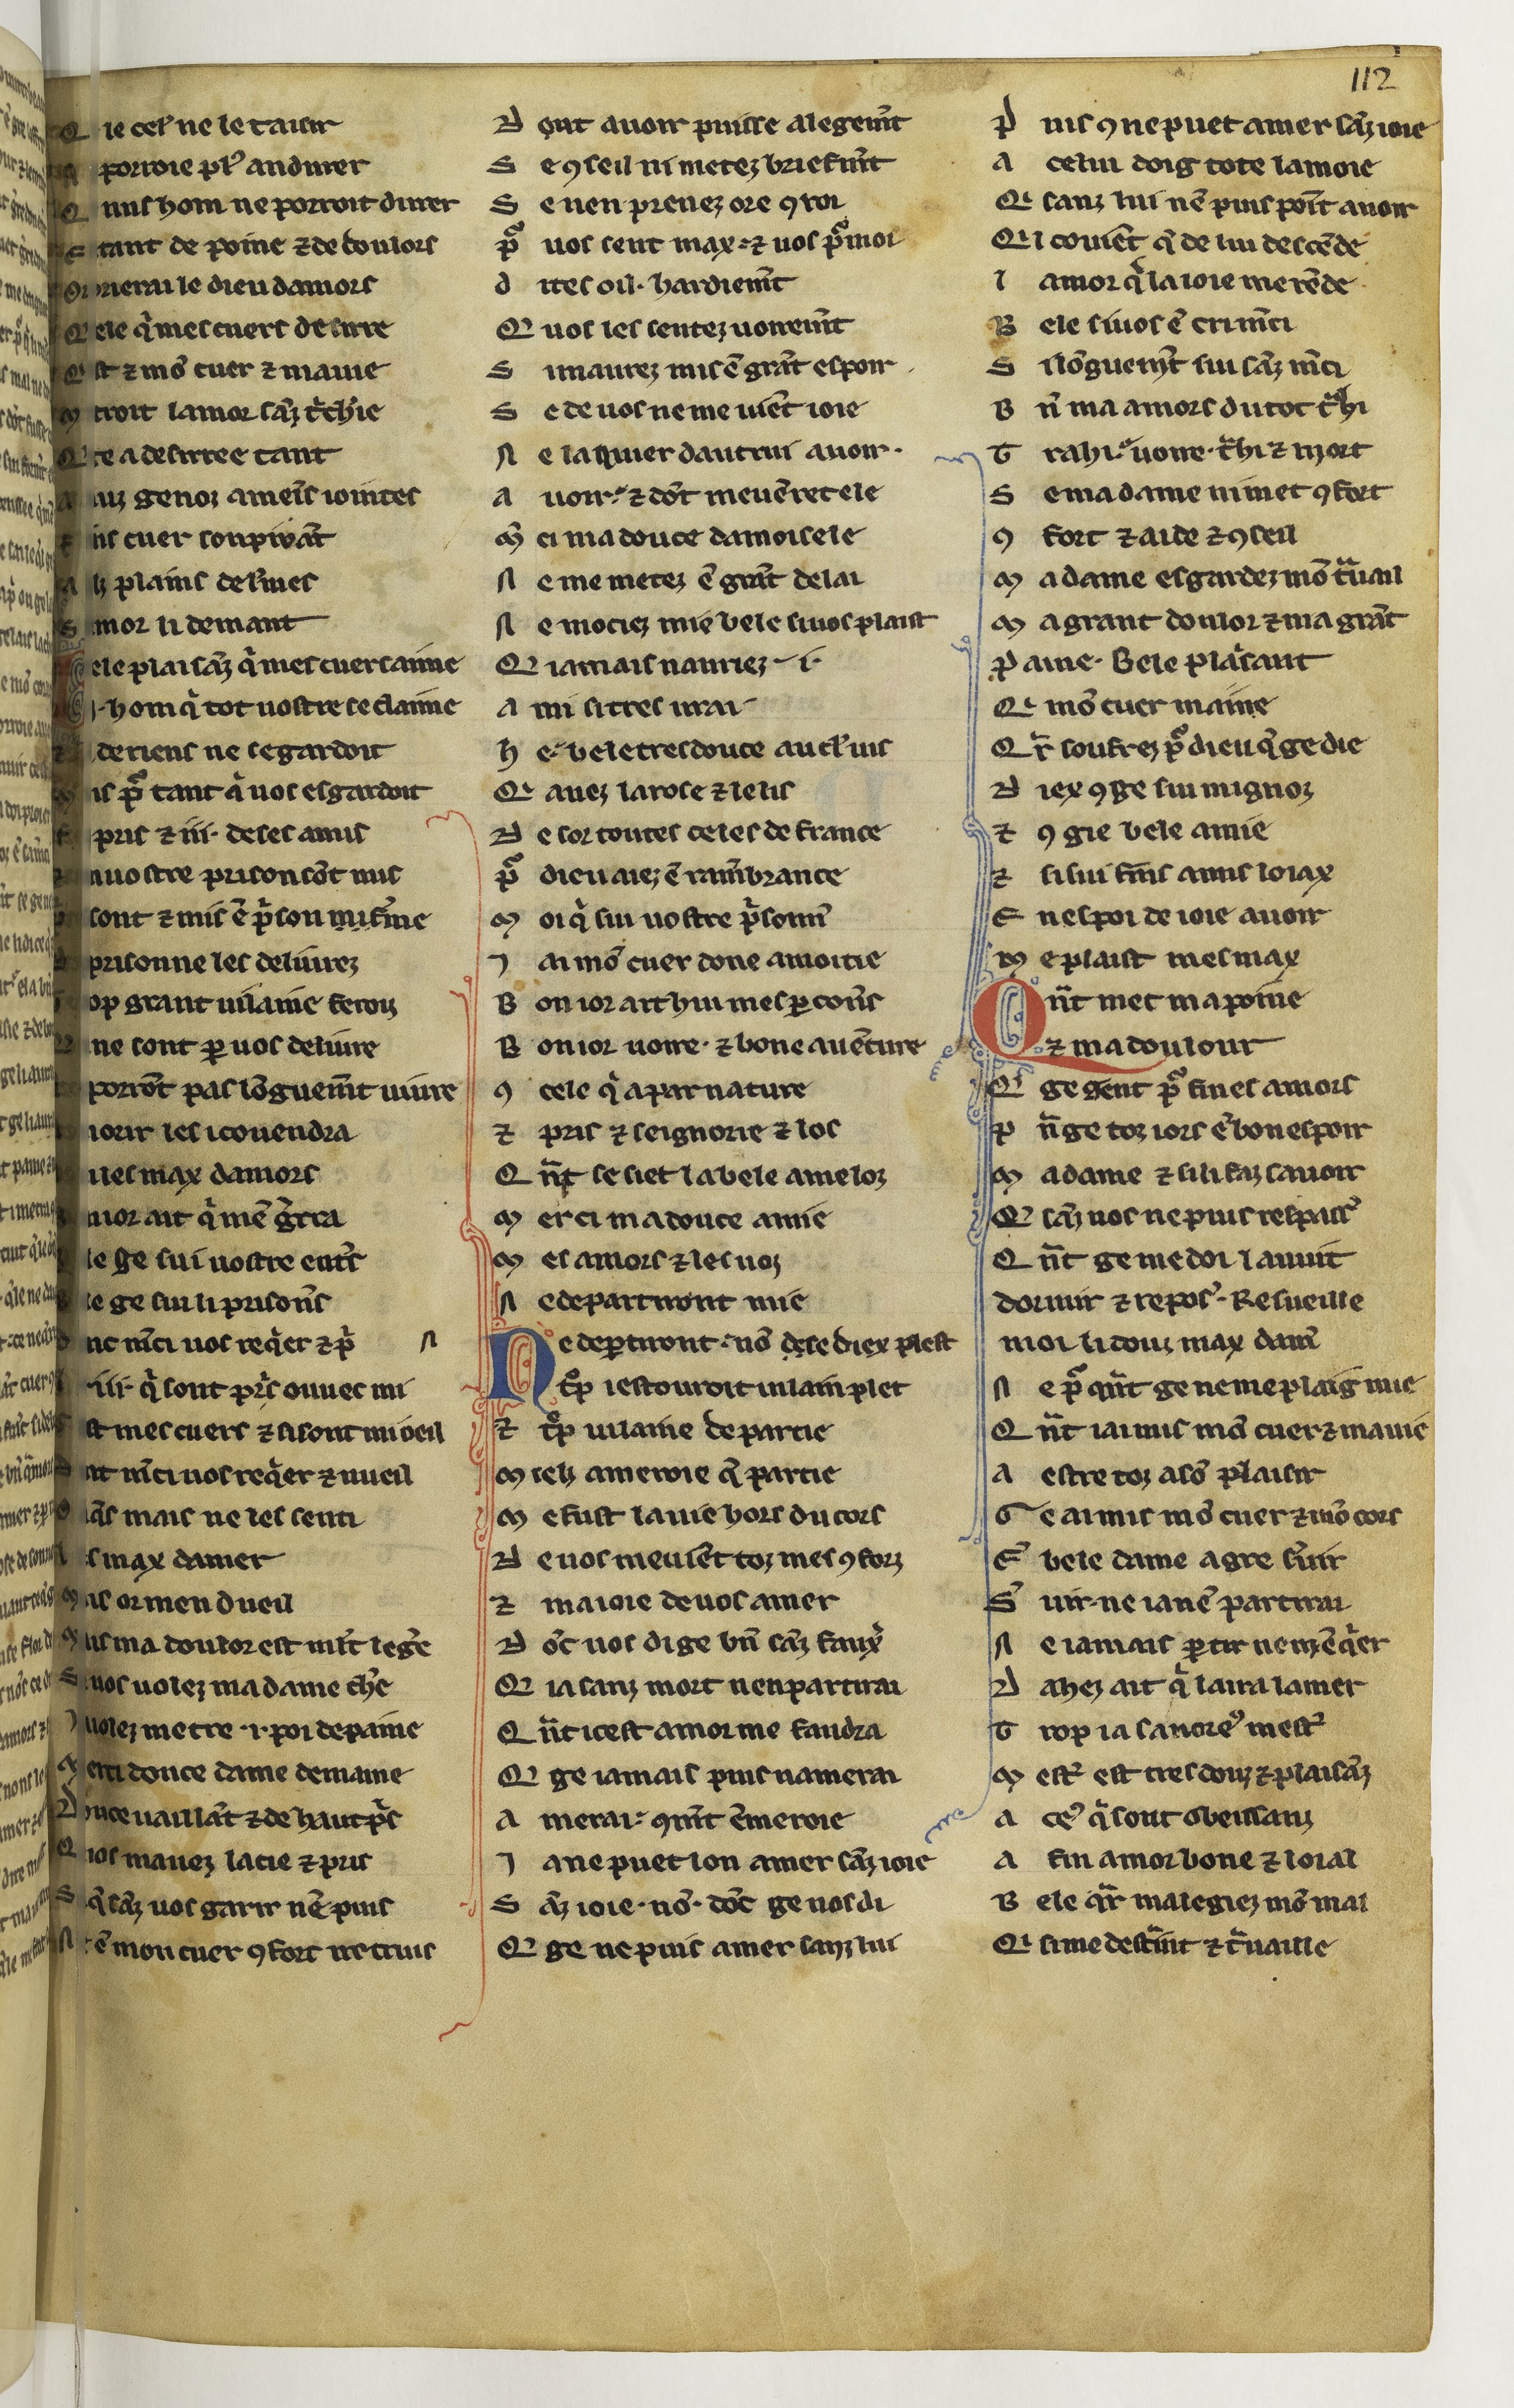 112
ie cel' ne le taisir
porroie pl' andurer
Q nus hom ne porroit durer
tant de poine ⁊ de doulors
rierai le dieu damors
ele q̾ mes cuers desirre
st ⁊ mō cuer ⁊ ma uie
troit lamor sāz t̾ch'ie
te a desirree tant
uz genoz a meīs iointes
is cuer soupirāt
plains de l'mes
mor li demant
ele plaisāz q̾ mes cuers aime
·i· hom q̾ tot uostre se claime
de riens ne se gardoit
is p̄ tant q̾ uos esgardoit
pris ⁊ iii· de ses amis
uostre prison sōt mis
sont ⁊ mis ē p̾son
prisonne les deliurez
op grant uilanie feroiz
ne sont ꝑ uos deliure
porrōt pas lōguem̄t uiure
morir les i couendra
ues max damors
mor ait q̾ mē g̾rra
le ge sui uostre entꝰ
le ge sui li prisoñs
nc m̄ci uos req̾er ⁊ p̾
·iii· q̾ sont p̾s ouuec mi
st mes cuers ⁊ si sont mi oeil
nt m̄ci uos req̾er ⁊ uueil
q̄s mais ne les senti
s max damer
is or men dueil
us ma doulor est m̄lt leg̾e
S uos uolez ma dame ch'e
J uolez metre ·i· poi de paine
M erci douce dame demaine
D ouce uaillāt ⁊ de haut p̾s
Q uos mauez lacie ⁊ pris
S q̄ sāz uos garir nē puis
N ē mon cuer ꝯfort ne truis
D ont auoir puisse alegem̄t
S e ꝯseil ni metez briefm̄t
S e nen prenez ore ꝯroi
p̄ uos sent max· ⁊ uos p̄ moi
d ites oil· hardiem̄t
Q uos les sentez uoirem̄t
S i maurez mis ē grāt espoir
S e de uos ne me uiēt ioie
N e la quier dautrui auoir·
A uoir· ⁊ dōt me uēret ele
M̾ ci ma douce damoisele
N e me metez ē grāt delai
N e mociez mie bele si uos plaist
Q iamais nauriez ·i·
A mi si tres urai
h e· bele tres douce au cl' uis
Q auez la rose ⁊ le lis
D e sor toutes celes de france
p̄ dieu aiez ē ram̄brance
M oi q̾ sui uostre p̾sonn̾
J ai mō cuer done a moitie
B on ior ait hui mes ꝑcoñs
B on ior uoire· ⁊ bone auēture
ꝯ cele q̾ a par nature
⁊ pris ⁊ seignorie ⁊ los
Q n̄t se siet la bele ameloz
M erci ma douce amie
M es amors ⁊ les uoz
N e departiront mie
N e deꝑtiront· nō se diex plest
t̾p i estouroit uilain plet
⁊ t̾p uilaine departie
M ielz ameroie q̄ partie
M e fust la uie hors du cors
D e uos me uiēt toz mes ꝯforz
⁊ ma ioie de uos amer
D ōc uos di ge bn̄ sāz faux̾
Q ia sanz mort nen partirai
Q n̄t icest amor me faudra
Q ge iamais puis namerai
A merai· ꝯm̄t ēmeroie
J a ne puet lon amer sāz ioie
S āz ioie· nō· dōc ge uos di
Q ge ne puis amer sanz lui
P uis ꝯ ne puet amer sāz ioie
A celui doig tote la moie
Q sanz lui nē puis poīt auoir
Q l couiēt q̄ de lui descēde
l amor q̾ la ioie me rēde
B ele si uos ē cri m̄ci
S i lōguem̄t sui sāz m̄ci
B n̄ ma amors du tot t̾hi
T rahi· uoire· t̾hi ⁊ mort
S e ma dame ni met ꝯfort
ꝯ fort ⁊ aide ⁊ ꝯseil
M a dame esgardez mō t̾uail
M a grant doulor ⁊ ma grāt
p aine· Bele pla̾sant
Q mō cuer maine
Q̾r souffrez p̄ dieu q̄ ge die
D iex ꝯ ge sui mignoz
⁊ ꝯ gie bele amie
⁊ si sui fins amis loiax
E nespoi de ioie auoir
M e plaist mes max
Q n̄t met ma poine
⁊ ma doulour
Q ge gent p̄ fines amors
P n̄ge toz iors ē bon espoir
M a dame ⁊ si li faz sauoir
Q sāz uos ne puis respass̾
Q n̄t ge me doi la nuit
dormir ⁊ repos̾· Resueille
moi li douz max dam̾
N e p̄ qn̄t ge ne me plaig mie
Q n̄t iai mis mō cuer ⁊ ma uie
A estre toz a sō plaisir
G e ai mis mō cuer ⁊ mō cors
E̾ bele dame a gre s̾uir
S̾ uir· ne ia nē partirai
N e iamais ꝑtir ne mē q̾er
D ahez ait q̾ laira lamer
T rop i a sauore' mest̾
M est̾ est tres douz ⁊ plaisāz
A ce' q̾ sont obeissanz
A fin amor bone ⁊ loial
B ele q̾r malegiez mō mal
Q si me dest̾int ⁊ t̾uaille